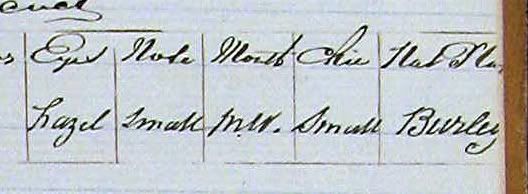 Eyes Nose Mouth Chin Nat Pla
hazel Small M.W. Small Burley